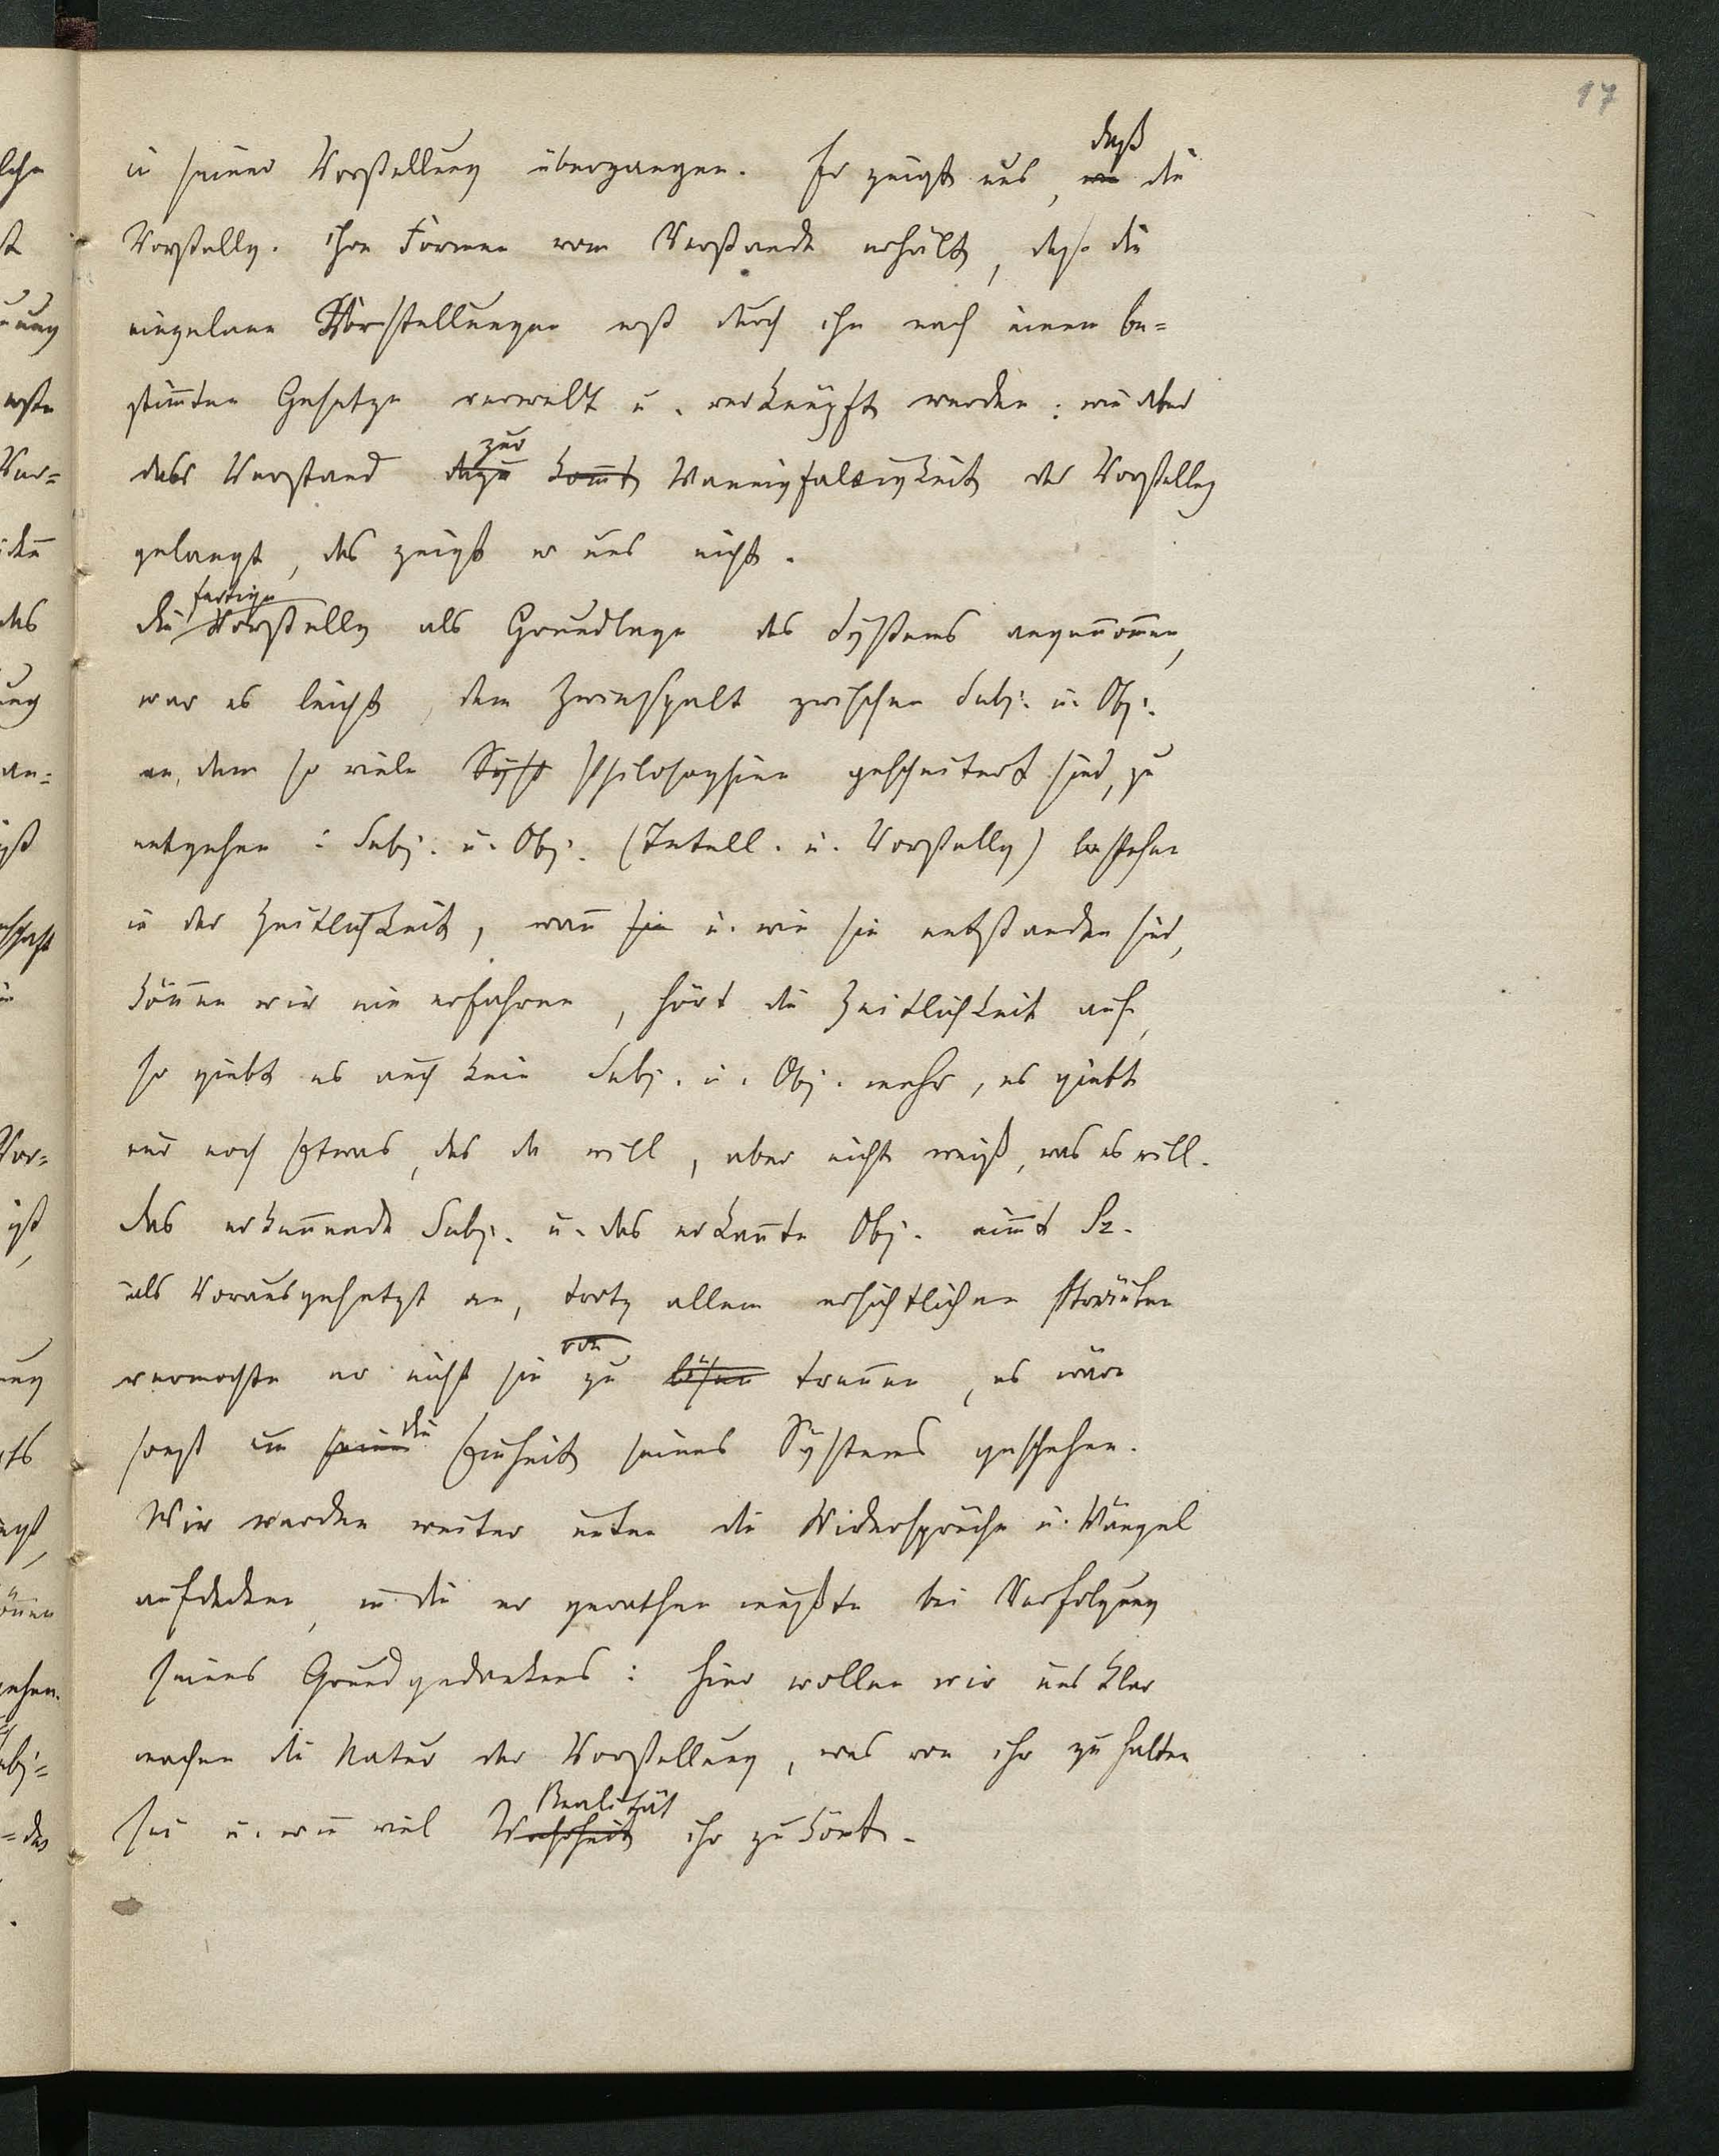 17
in seiner Vorstellung übergangen. Er zeigt uns, daß die
Vorstellg. ihre Formen vom Verstande erhält, daß die
einzelnen Vorstellungen erst durch ihn nach einem be=
stim̄ten Gesetze verwebt u. verknüpft werden: wie aber
der Verstand dazu kom̄t zur Mannigfaltigkeit der Vorstellg
gelangt, das zeigt er uns nicht.
die fertige Vorstellg als Grundlage des Systems angenom̄en,
war es leicht, dem Zwiespalt zwischen Subj. u. Obj.
an dem so viele Syst Philosophien gescheitert sind, zu
entgehen: Subj. u. Obj. (Intell. u. Vorstellg) bestehen
in der Zeitlichkeit, wan̄ sie u. wie sie entstanden sind,
kön̄en wir nie erfahren, hört die Zeitlichkeit auf,
so giebt es auch kein Subj. u. Obj. mehr, es giebt
nur noch Etwas, das da will, aber nicht weiß, was es will.
das erken̄ende Subj. u. das erkan̄te Obj. nim̄t
als Vorausgesetzt an, trotz allem ersichtlichen Sträuben
vermochte er nicht sie zu lösen tren̄en, es wäre
sonst um seine die Einheit seines Systems geschehen.
Wir werden weiter unten die Widersprüche u. Mängel
aufdecken, in die er gerathen mußte bei Verfolgung
seines Grundgedankens: hier wollen wir uns klar
machen die Natur der Vorstellung, was von ihr zu halten
sei u. wie viel Wahrheit Realität ihr zu köm̄t.